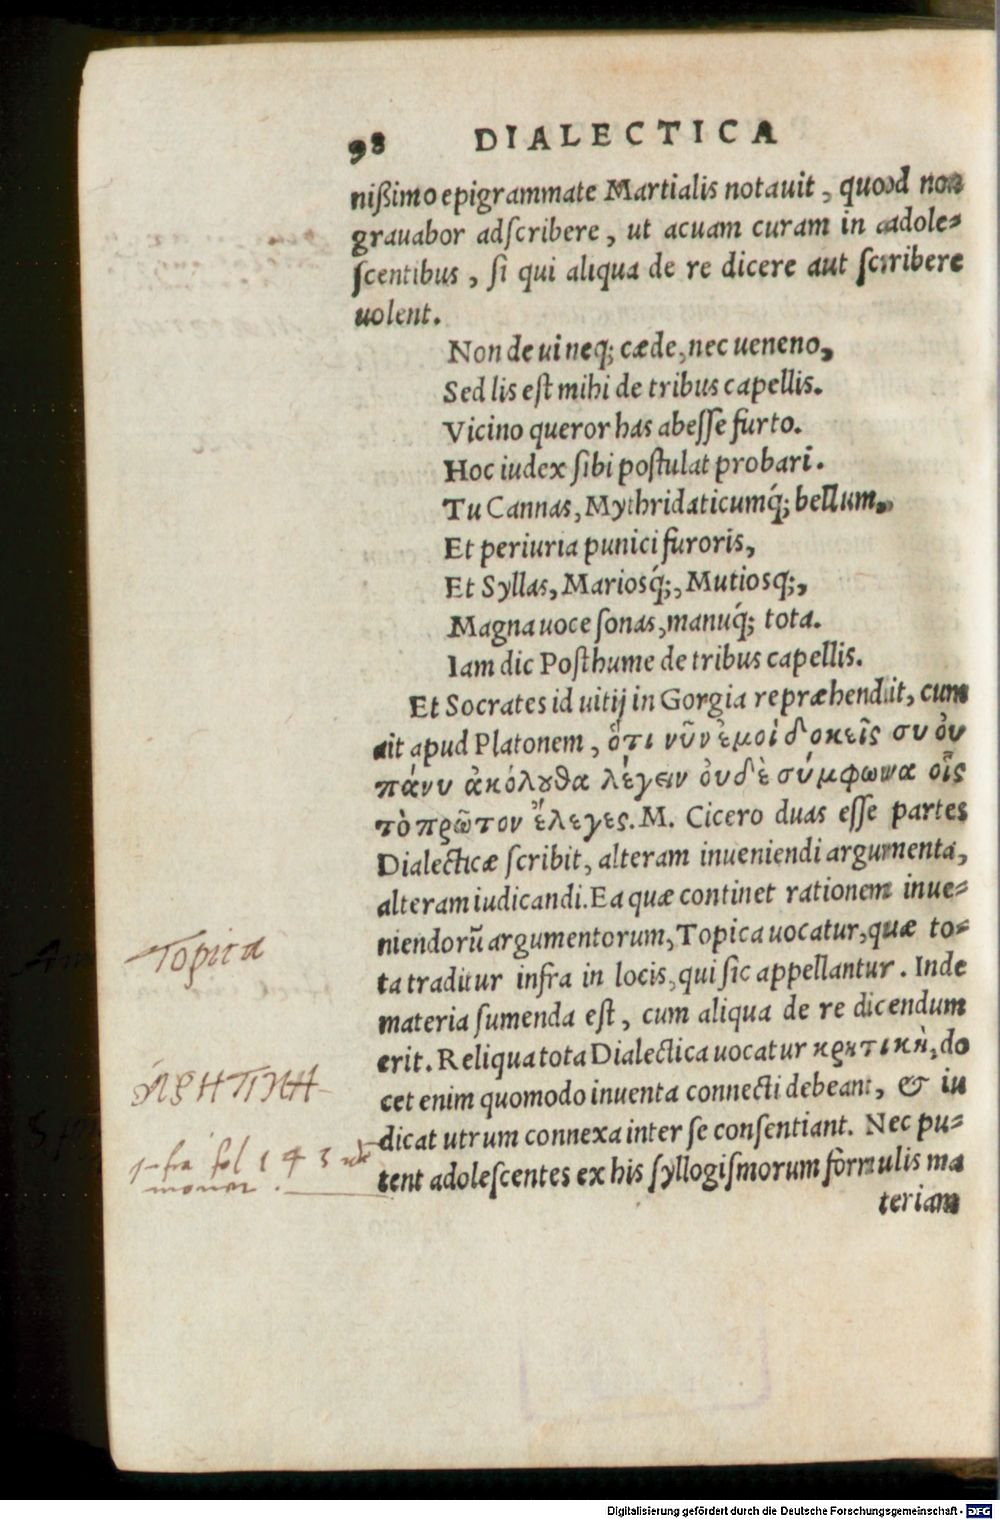 98 DIALECTICA
nißimo epigrammate Martialis notauit, quod non
grauabor adſcribere, ut acuam curam in adole⸗
ſcentibus, ſi qui aliqua de re dicere aut ſcribere
uolent.
Non de ui neq; cæde, nec ueneno,
Sed lis eſt mihi de tribus capellis.
Vicino queror has abeſſe furto.
Hoc iudex ſibi poſtulat probari.
Tu Cannas, Mythridaticumq́; bellum,
Et periuria punici furoris,
Et Syllas, Mariosq́;, Mutiosq;,
Magna uoce ſonas, manuq́; tota.
Iam dic Poſthume de tribus capellis.
Et Socrates id uitij in Gorgia repræhendit, cum
ait apud Platonem, ὅτι νῦν ἐμοὶ δοκεῖς συ ὀυ
πάνυ ἀκόλȣθα λέγειν ὀυδὲ σύμφωνα οἷς
τὸ πρῶτον ἔλεγες. M. Cicero duas eſſe partes
Dialecticæ ſcribit, alteram inueniendi argumenta,
alteram iudicandi. Ea quæ continet rationem inue⸗
niendorũ argumentorum, Topica uocatur, quæ to⸗
ta traditur infra in locis, qui ſic appellantur. Inde
materia ſumenda eſt, cum aliqua de re dicendum
erit. Reliqua tota Dialectica uocatur κρητικὴ, do
cet enim quomodo inuenta connecti debeant, & iu
dicat utrum connexa inter ſe conſentiant. Nec pu⸗
tent adoleſcentes ex his ſyllogiſmorum formulis ma
teriam
Topica
ΚΡΗΤΙΚΗ
Infra fol 143
Digitalisierung gefördert durch die Deutsche Forschungsgemeinschaft - DFG